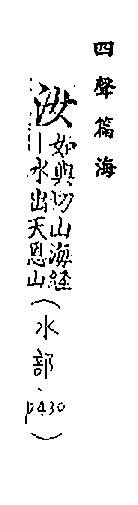 四聲篇海
汝 如與切山海経
｜水出天恩山（水部、p430）